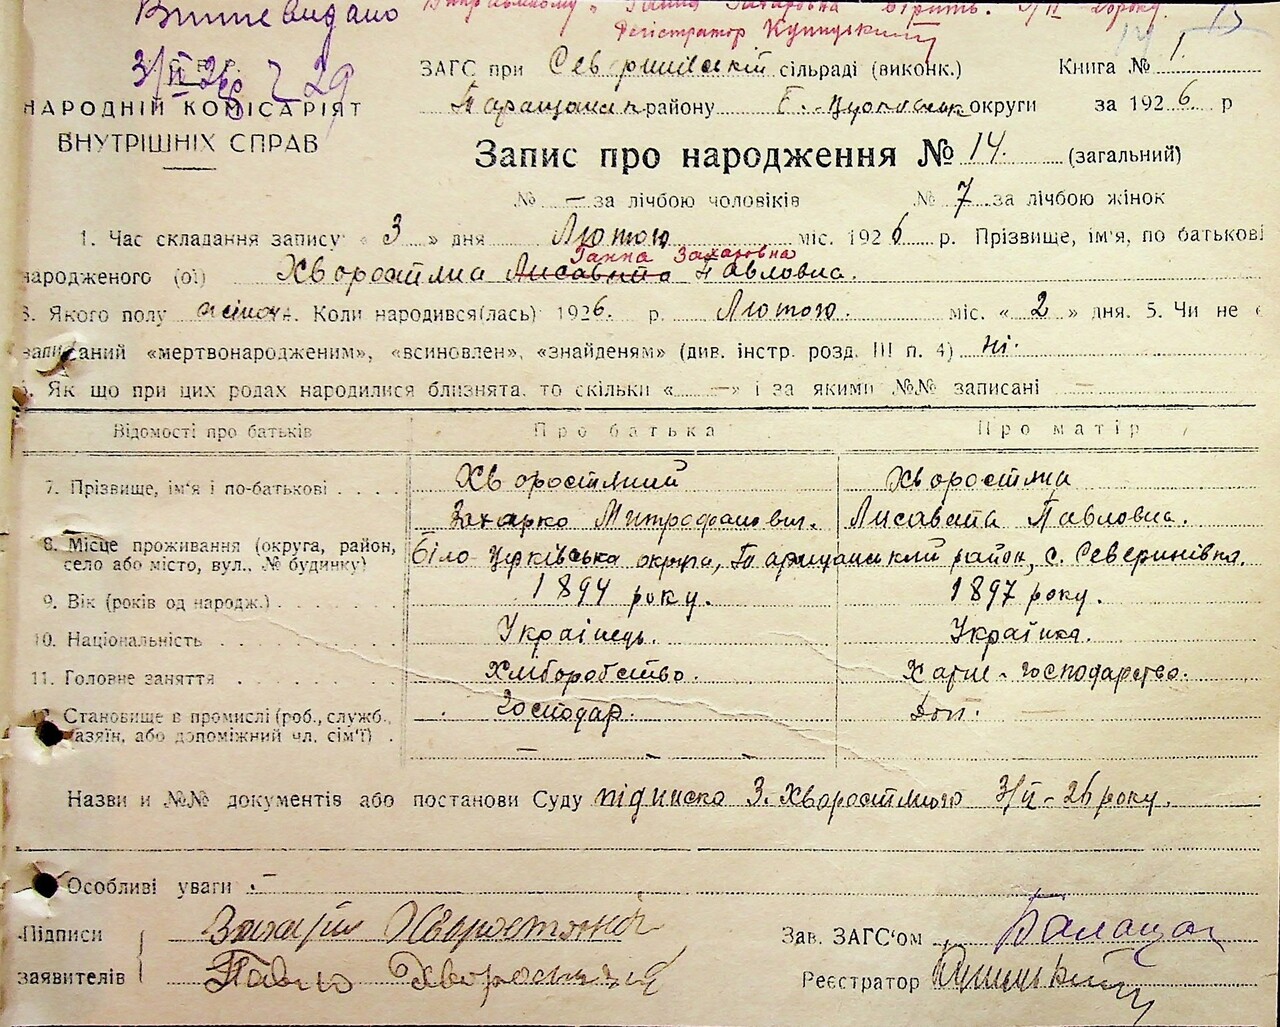 Витяг видано
Виправленому "Ганна Захаровна" вірить. 3/II 26 року.
Регістратор
3/II 26 р № 29
ЗАГС при Северинівській сільраді (виконк.) Книга № 1.
НАРОДНІЙ КОМІСАРІЯТ
Таращанськ району Б.-Церковськ округи за 1926 р
ВНУТРІШНІХ СПРАВ
Запис про народження № 14. (загальний)
№ — за лічбою чоловіків № 7 за лічбою жінок
1. Час складання запису "3" дня Лютого міс. 1926 р. Прізвище, ім'я, по батькові
Ганна Захаровна
народженого (ої) Хворостяна Лисавета Павловна.
3. Якого полу жіноч. Коли народився(лась) 1926. р. Лютого. міс. «2» дня. 5. Чи не є
записаний «мертвонародженим», «всиновлен», «знайденям» (див. інстр. розд. III п. 4) ні.
Як що при цих родах народилися близнята, то скільки «—» і за якими №№ записані —
Відомості про батьків Про батька Про матір
7. Прізвище, ім'я і по-батькові Хворостяний Хворостяна
Захарко Митрофанович. Лисавета Павловна.
8. Місце проживання (округа, район, село або місто, вул., № будинку) Біло-Церківська округа, Таращанський район, с. Северинівка.
9. Вік (років од народж.) 1894 року. 1897 року.
10. Національність Українець. Українка.
11. Головне заняття Хліборобство. Хатнє-господарство.
12. Становище в промислі (роб., служб., хазяїн, або допоміжний чл. сім'ї) Господар. Доп. —
— —
Назви и №№ документів або постанови Суду підписка З. Хворостяного 3/II-26 року.
Особливі уваги —
Підписи заявителів Захарій Хворостяній
Павло Хворостяній
Зав. ЗАГС'ом
Реєстратор